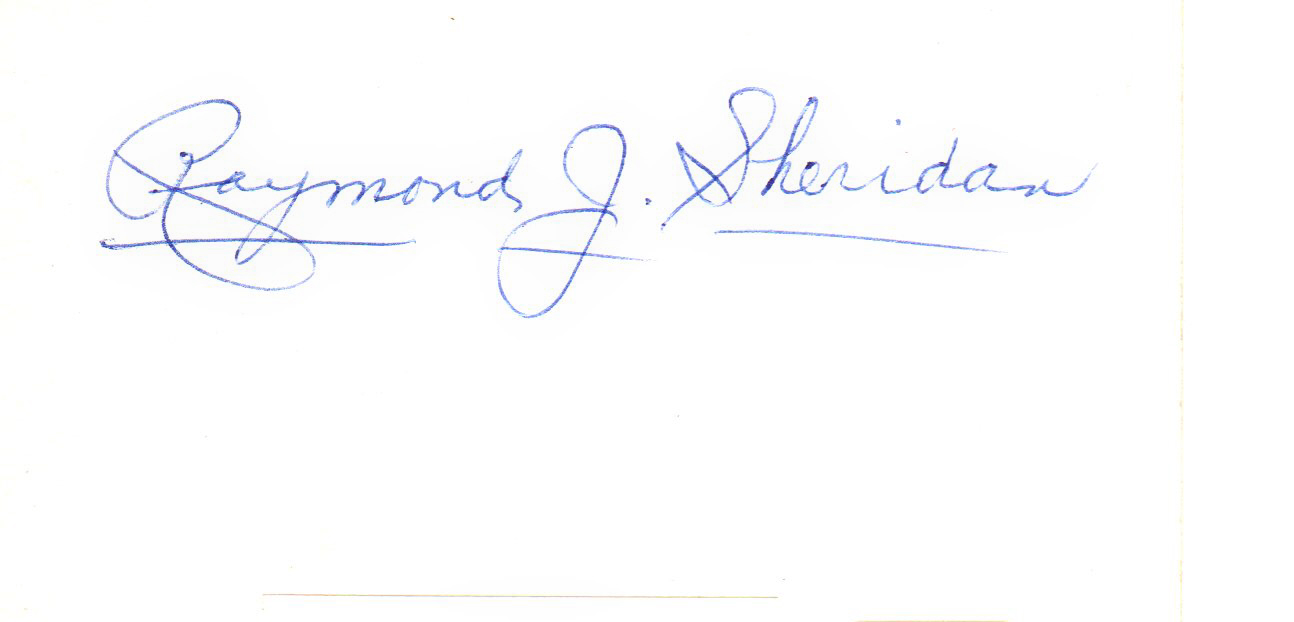 Raymond J. Sheridan